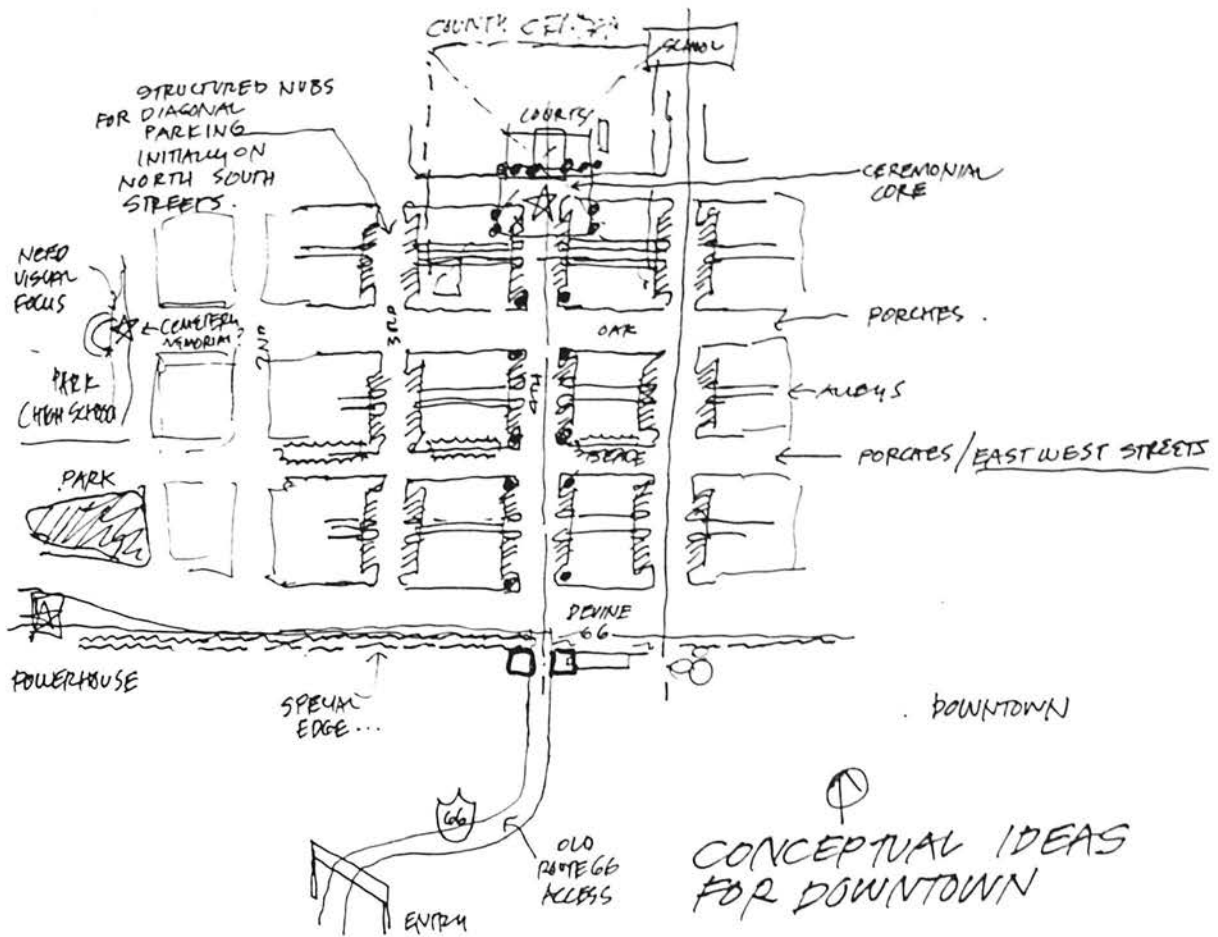 COUNTY CENTER
SCHOOL
STRUCTURED NUBS
FOR DIAGONAL
PARKING
INITIALLY ON
NORTH SOUTH
STREETS.
COURTS
CEREMONIAL
CORE
NEED
VISUAL
FOCUS
CEMETERY
MEMORIAL?
2ND
3RD
4TH
OAK
PORCHES.
PARK
(HIGH SCHOOL)
ALLEYS
BEALE
PORCHES/EAST WEST STREETS
PARK
DEVINE
66
POWERHOUSE
SPECIAL
EDGE...
DOWNTOWN
66
OLD
ROUTE 66
ACCESS
ENTRY
CONCEPTUAL IDEAS
FOR DOWNTOWN